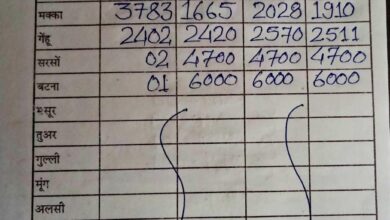 मक्का 3783 1665 2028 1910
गेंहू 2402 2420 2570 2511
सरसों 02 4700 4700 4700
बटना 01 6000 6000 6000
मसूर
तुअर
गुल्ली
मूंग
अलसी